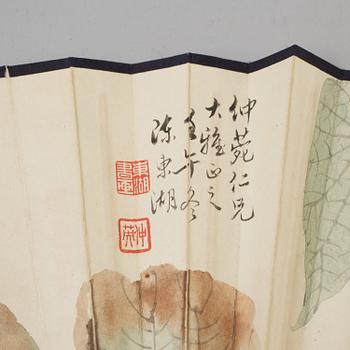 仲菀仁兄
大雅正之
壬午冬
陈東湖
東湖書畫
仲英